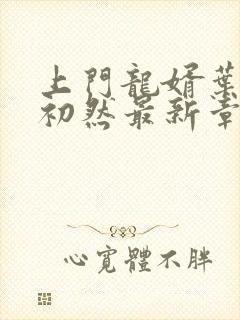 上門龍婿葉
初然最新章
心寬體不胖